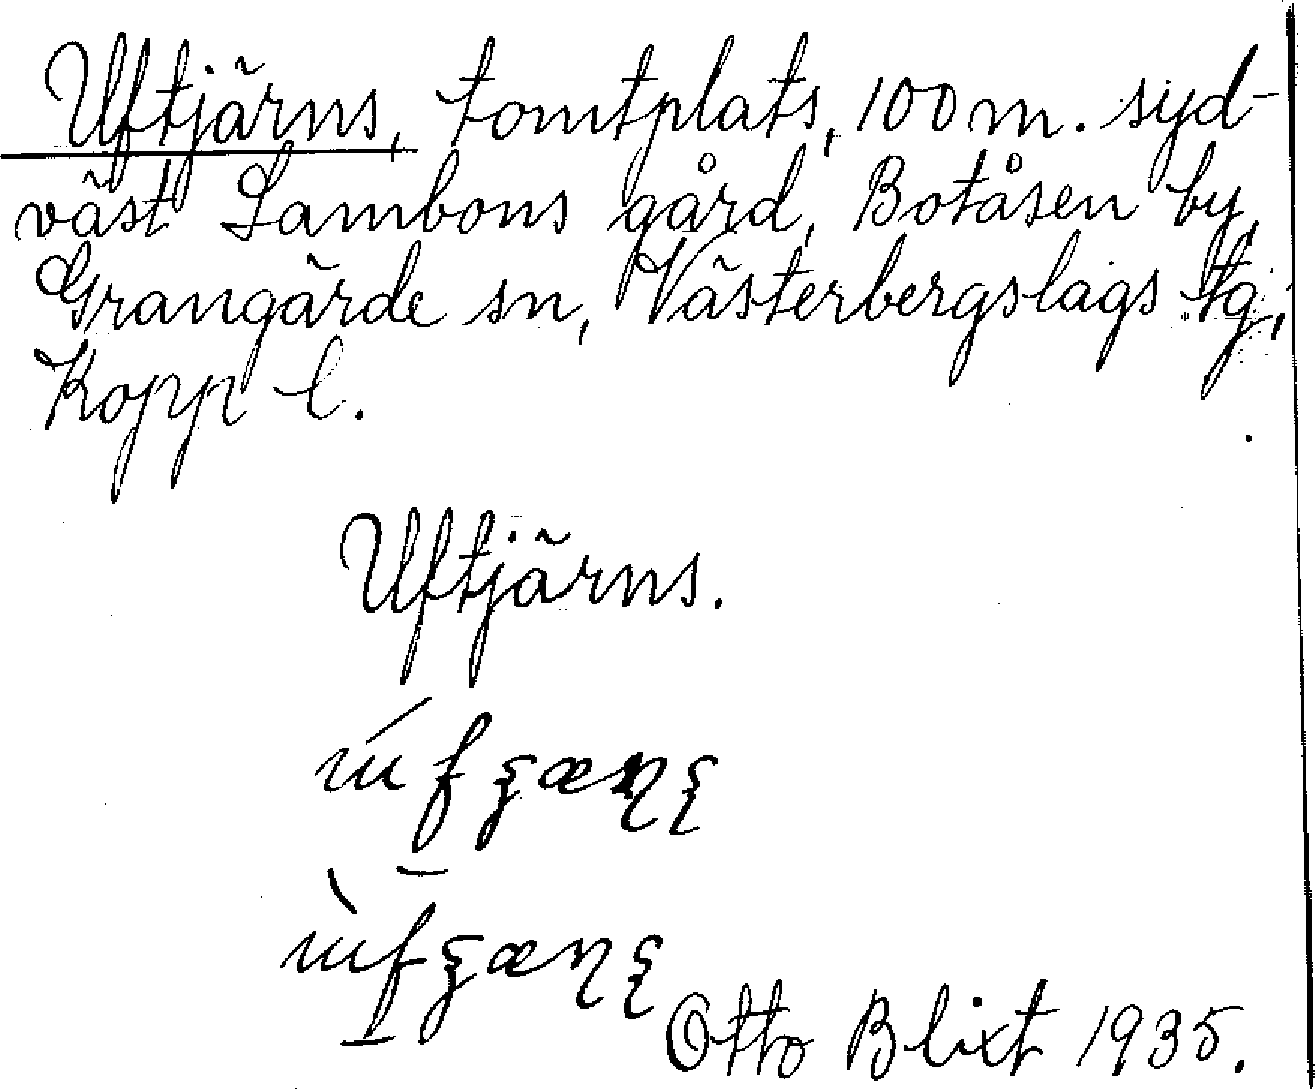 Uftjärns, tomtplats, 100 m. syd-
väst Lambons gård, Botåsen by,
Grangärde sn, Västerbergslags tg,
Kopp l.
Uftjärns.
Otto Blixt 1935.